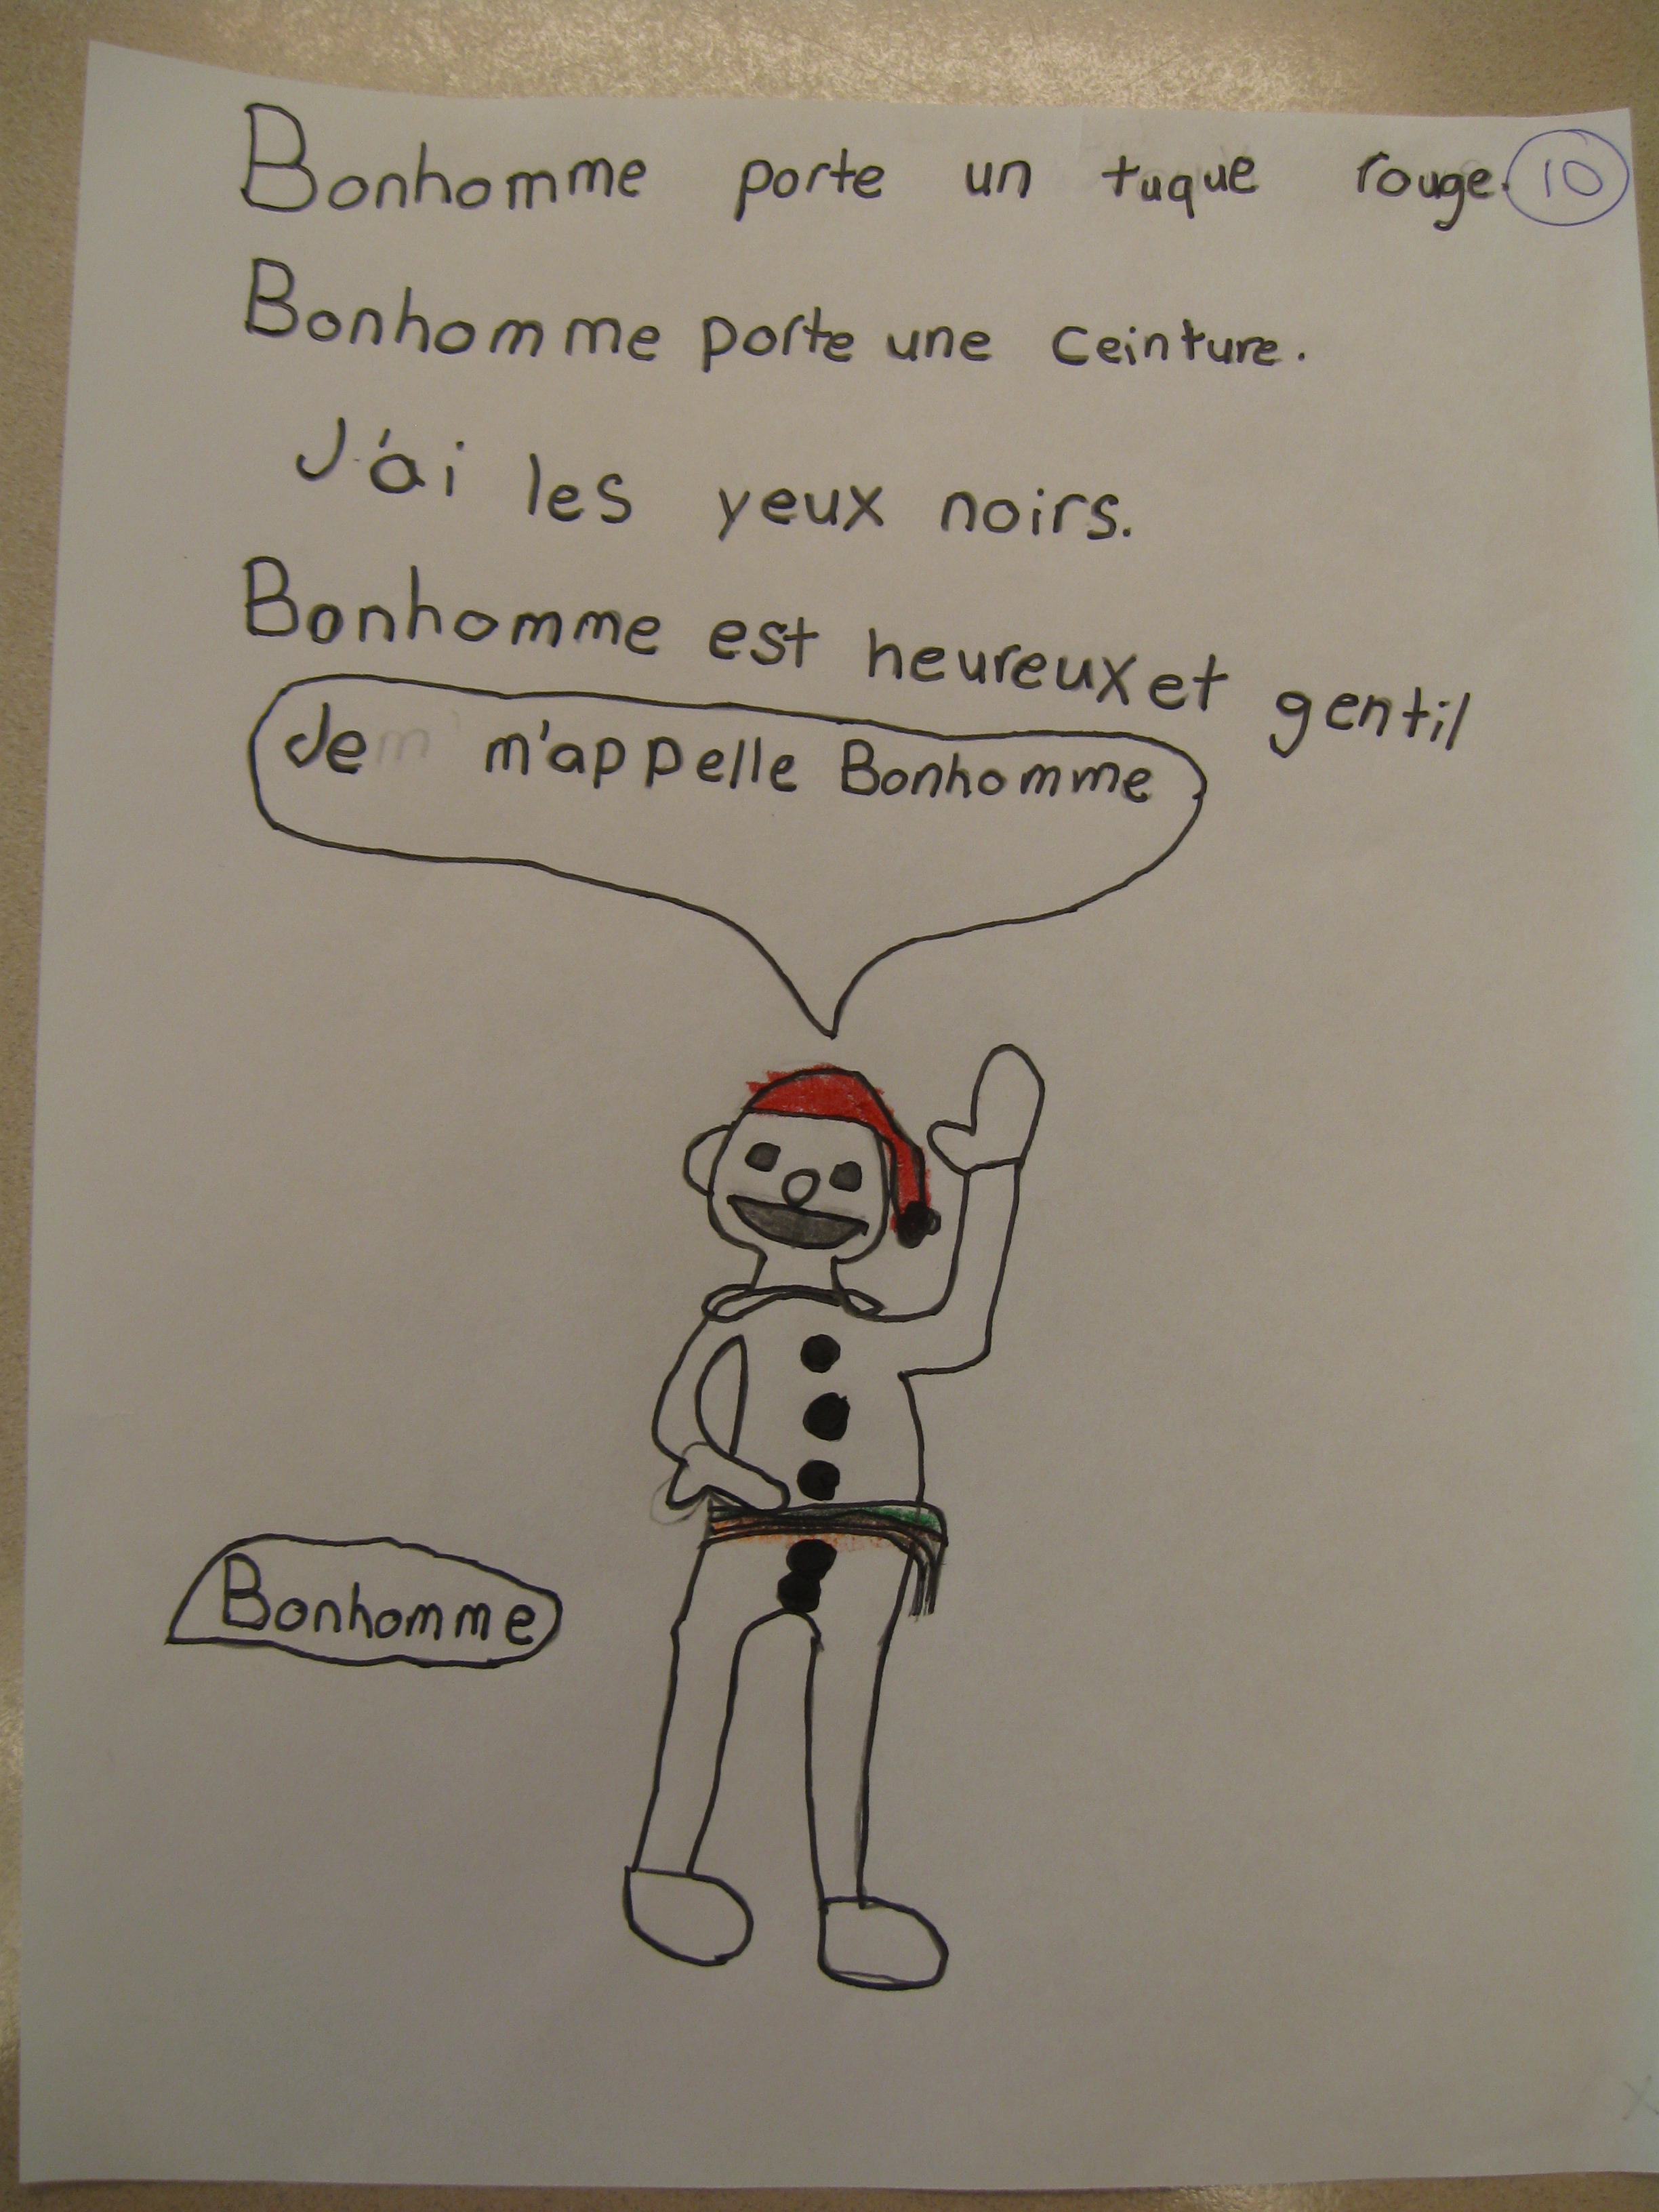 Bonhomme porte un tuque rouge. 10
Bonhomme porte une ceinture.
J'ai les yeux noirs.
Bonhomme est heureux et gentil
Je m'appelle Bonhomme
Bonhomme